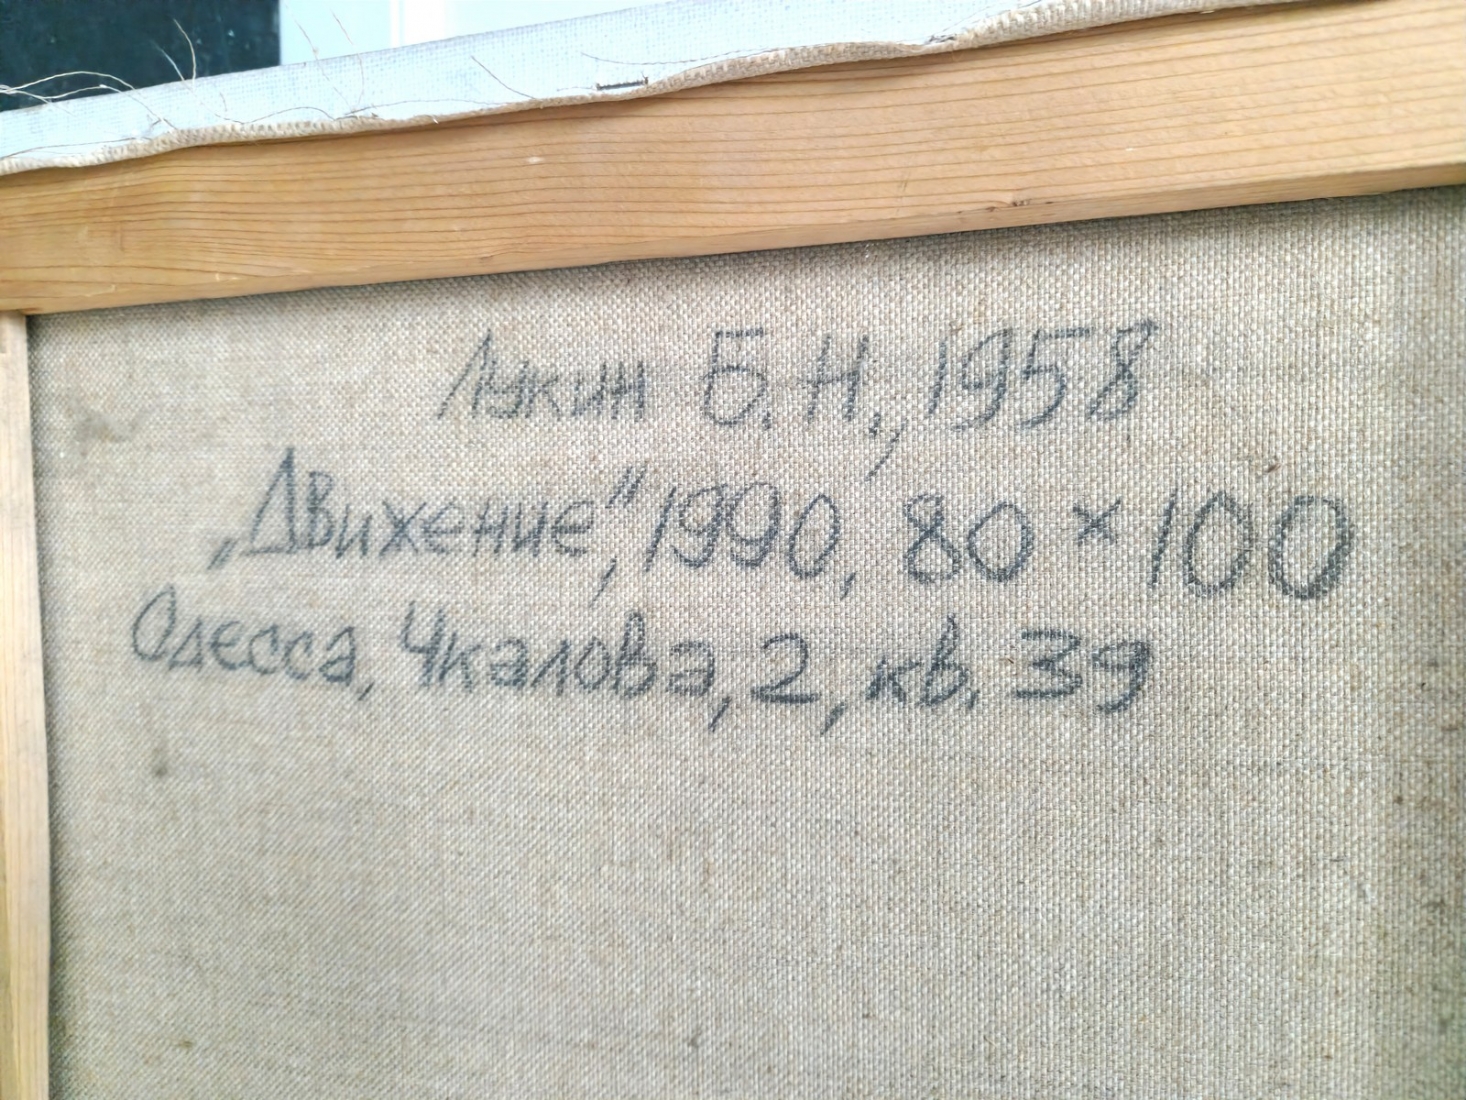 Лукин Б.Н., 1958
„Движение", 1990, 80 × 100
Одесса, Чкалова, 2, кв. 39